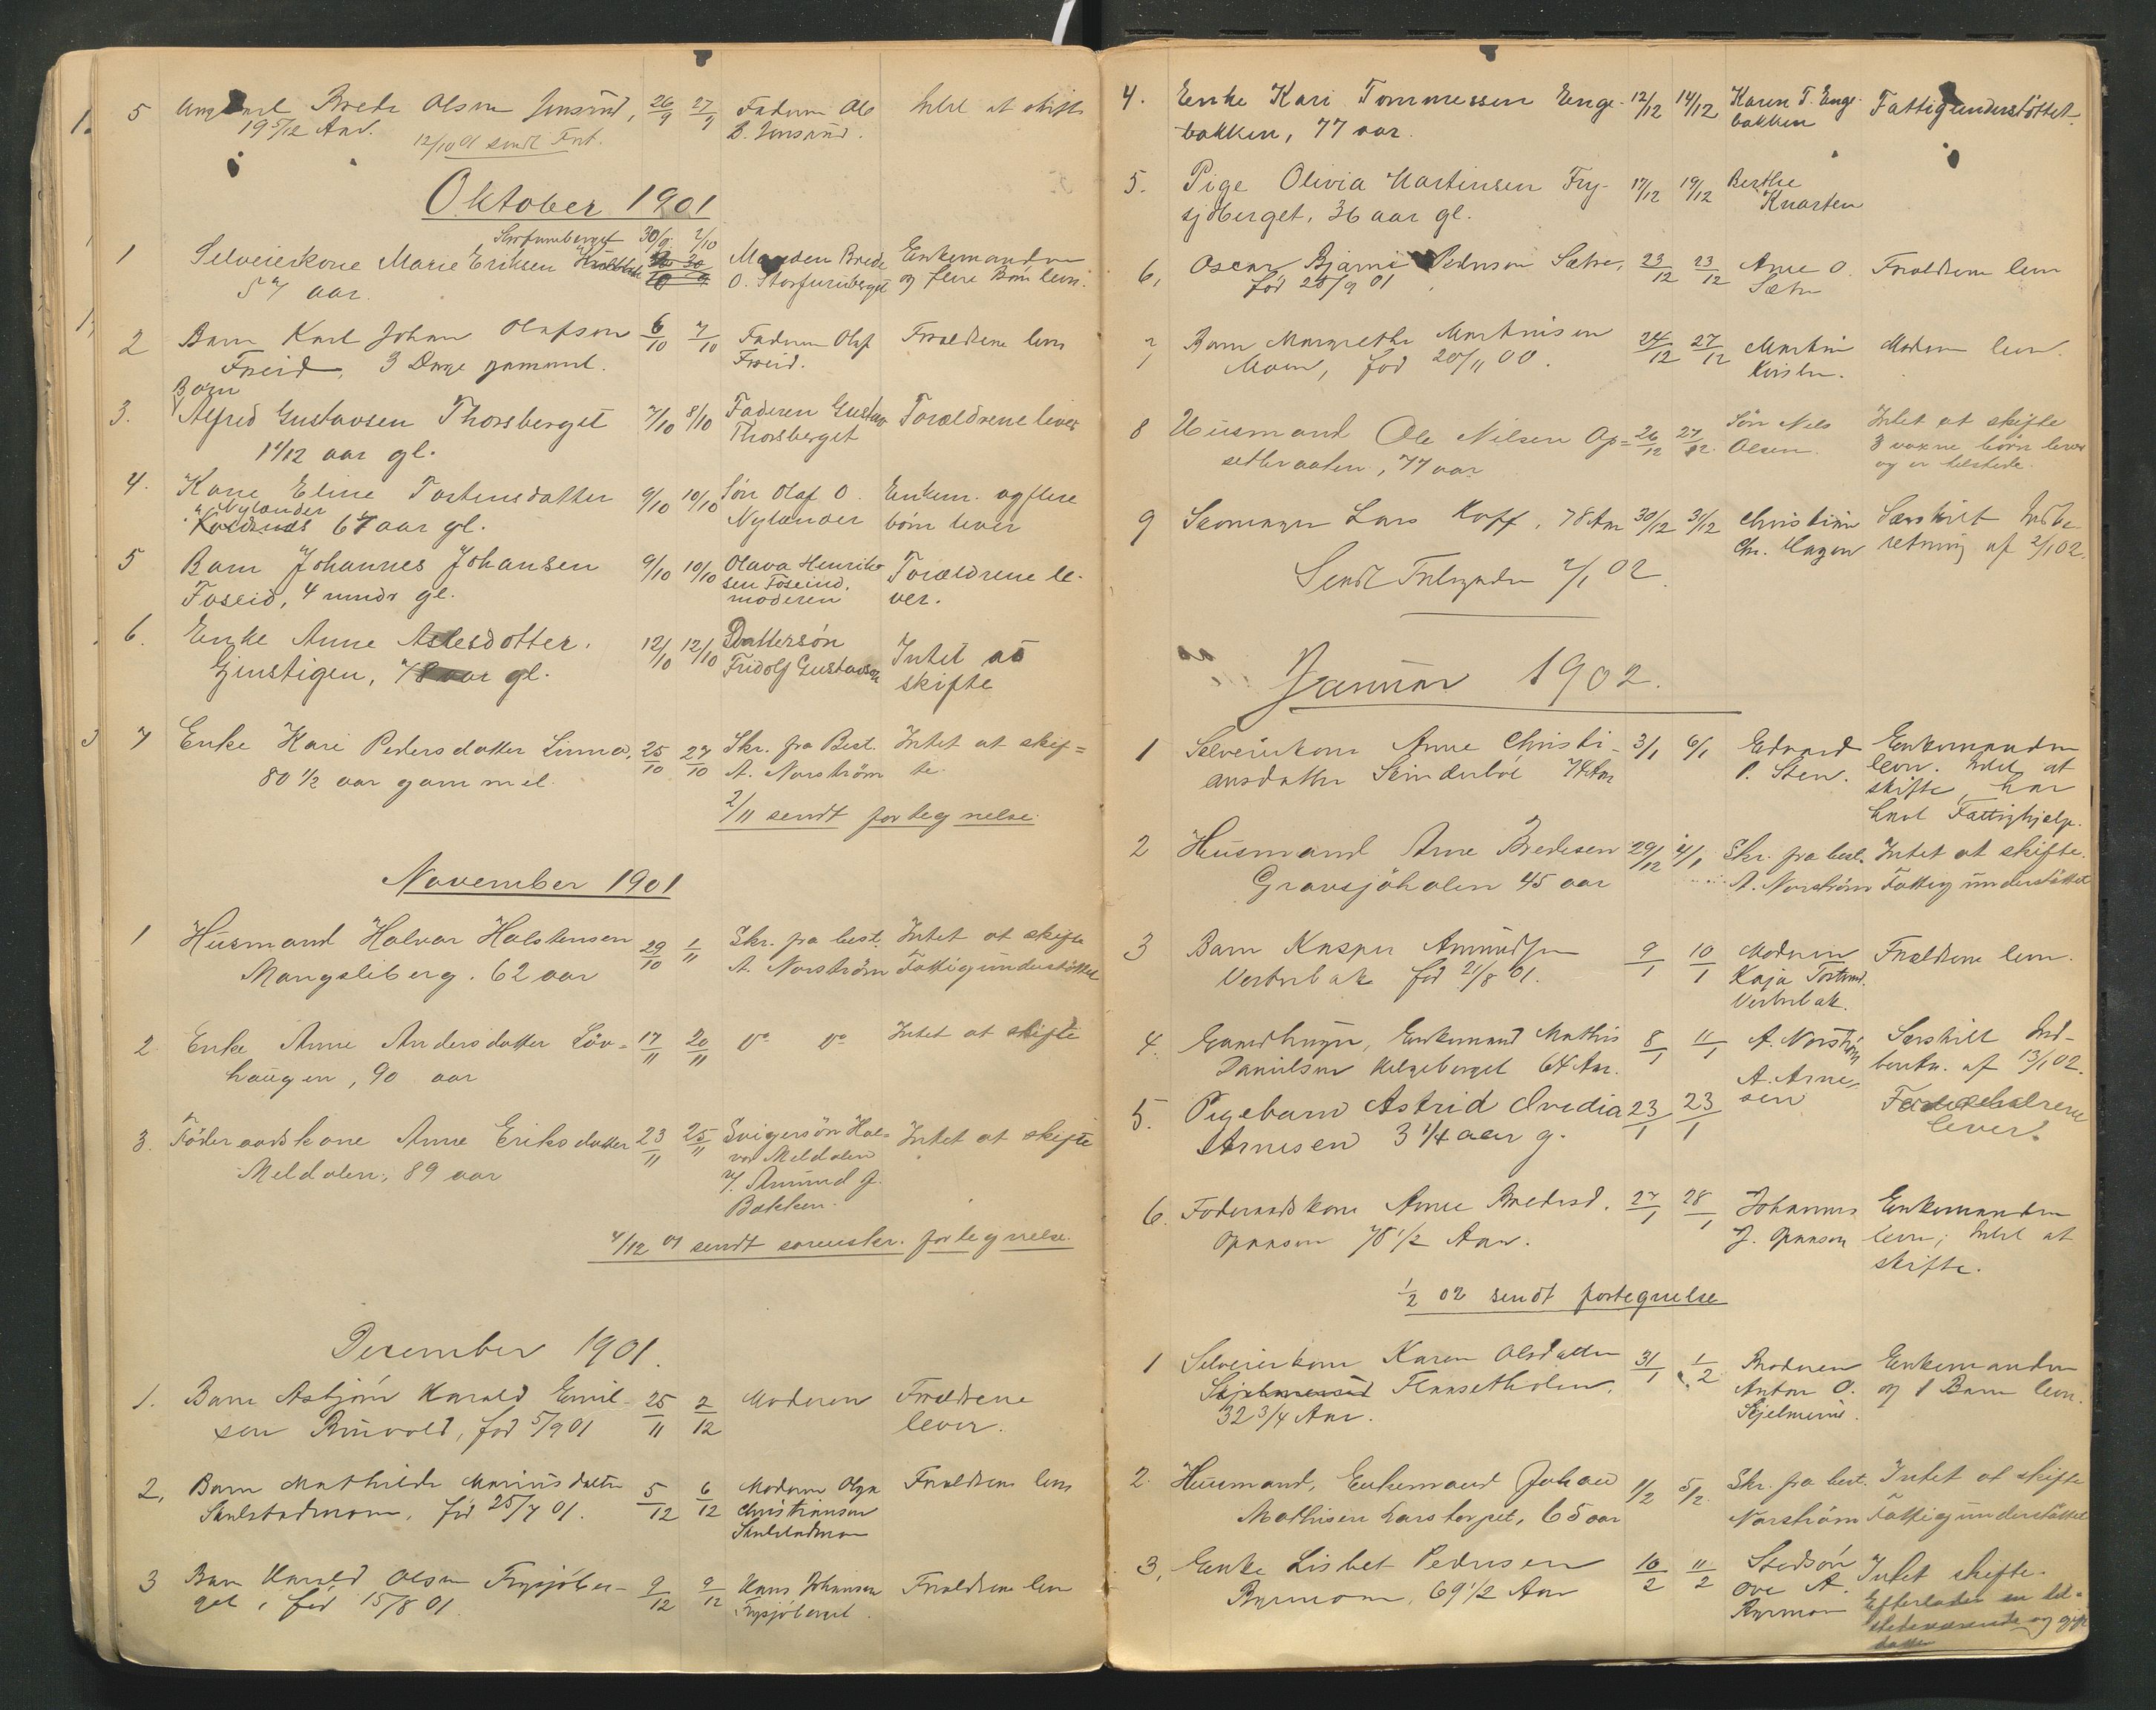 5 Ungkarl Brede Olsen Jonsrud, 26/9 27/9 Faderen Ole Intet at skifte
19 5/12 Aar. B. Jonsrud.
12/10 01 sendt Fort.
Oktober 1901
Storfuruberget 30/9 2/10
1 Selveierkone Marie Eriksen Manden Brede Enkemanden
57 aar. O. Storfuruberget og flere Børn lever.
2 Barn Karl Johan Olafsen 6/10 7/10 Faderen Olaf Forældrene lever
Foseid, 3 Dage gammel. Foseid.
Barn
3. Alfred Gustavsen Thorsberget 7/10 8/10 Faderen Gustav Forældrene lever
1 1/12 aar gl. Thorsberget
4. Kone Eline Torstensdatter 9/10 10/10 Søn Olaf O. Enkem. og flere
Nylander
67 aar gl. Nylander børn lever
5 Barn Johannes Johansen 9/10 10/10 Olava Henrik- Forældrene le-
Foseid, 4 mndr gl. sen Foseid, ver.
moderen
6. Enke Anne Aslesdotter. 12/10 12/10 Dattersøn Intet at
Gjenstigen, 78 aar gl. Fridolf Gustavsen skifte
7 Enke Kari Pedersdatter Linna, 25/10 27/10 Skr. fra Best. Intet at skif=
80 1/2 aar gammel. A. Norström te.
2/11 sendt fortegnelse.
November 1901
1 Husmand Halvor Halstensen 29/10 1/11 Skr. fra best. Intet at skifte
Mangsliberg. 62 aar A. Norström Fattigunderstöttet
2 Enke Anne Andersdatter Löv= 17/11 20/11 do do Intet at skifte
haugen, 90 aar
3. Föderaadskone Anne Eriksdatter 23/11 25/11 Svigersön Hal= Intet at skifte
Meldalen, 89 aar vor Meldalen
v/ Amund J.
Bakken.
4/12 01 sendt sorenskr. fortegnelse.
December 1901.
1. Barn Asbjörn Harald Emil- 25/11 2/12 Moderen Forældrene
sen Runvold, fød 5/9 01 lever.
2. Barn Mathilde Mariusdatter 5/12 6/12 Moderen Olga Forældrene lever
Skulstadmoen, fød 25/7 01. Christiansen
Skulstadmoen
3 Barn Harald Olsen Frysjöber- 9/12 9/12 Hans Johansen Forældrene lever
get, fød 15/8 01. Frysjöberget.
4. Enke Kari Tommessen Enge- 12/12 14/12 Karen T. Enge- Fattigunderstøttet.
bakken, 77 aar. bakken
5. Pige Olivia Martinsen Fry- 17/12 19/12 Berthe
sjöberget, 36 aar gl. Knarten
6, Oscar Bjarne Pedersen Sætre, 23/12 23/12 Arne O. Forældrene lever
fød 28/9 01 Sætre
7 Barn Margrethe Martinsen 24/12 27/12 Martin Moderen lever.
Moen, fød 20/11 00. Kirsten.
8 Husmand Ole Nilsen Op= 26/12 27/12 Søn Nils Intet at skifte
setbraaten, 77 aar Olsen. 3 voxne børn lever
og er tilstede.
9 Lars Koff, 78 Aar 30/12 31/12 Christian Særskilt Indbe-
Chr. Hagen retning af 2/1 02.
Sendt Fortegnelse 2/1 02.
Januar 1902.
1 Selveierkone Anne Christi- 3/1 6/1 Edvard Enkemanden
ansdatter Skinderbøl 74 Aar P. Sten. lever. Intet at
skifte, har
havt Fattighjælp.
2 Husmand Arne Bredesen 29/12 4/1 Skr. fra best. Intet at skifte.
Gravsjöholen 45 aar A. Norström Fattigunderstöttet
3 Barn Kasper Amundsen 9/1 10/1 Moderen Forældrene lever.
Vesterbak fød 21/8 01. Kaja
Vesterbak.
4. Gaardbruger, Enkemand Mathis 8/1 11/1 A. Norström Særskilt Ind-
Danielsen Helgeberget 64 Aar. beretn. af 13/1 02.
5. Pigebarn Astrid Ovedia 23/1 23/1 A. Arne- Forældrene
Arnesen 3 1/4 aar g. sen lever.
6. Foderaadskone Anne Bredesd. 27/1 28/1 Johannes Enkemanden
Opaasen 78 1/2 Aar. J. Opaasen lever; Intet at
skifte.
1/2 02 sendt fortegnelse
1 Selveierkone Karen Olsdatter 31/1 1/2 Broderen Enkemanden
Skjelmerud Flansetholen, Anton O. og 1 Barn lever.
32 3/4 Aar. Skjelmerud.
2. Husmand, Enkemand Johan 1/2 5/2 Skr. fra best. Intet at skifte
Mathisen Larstorpet, 65 aar Norström Fattigunderstöttet
3, Enke Lisbet Pedersen 10/2 11/2 Stedsön Intet skifte.
Rynmoen, 69 1/2 Aar Ove A. Efterlader en til-
Rynmoen stedeværende og gift
datter